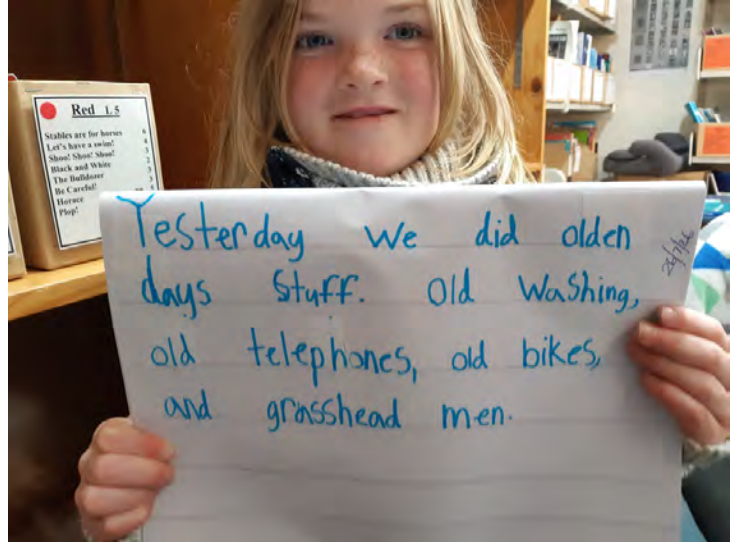 Red L 5
Stables are for horses 6
Let's have a swim! 4
Shoo! Shoo! Shoo! 3
Black and White 2
The Bulldozer 3
Be Careful! 3
Horace
Plop!
Yesterday we did olden
days stuff. Old washing,
old telephones, old bikes,
and grasshead men.